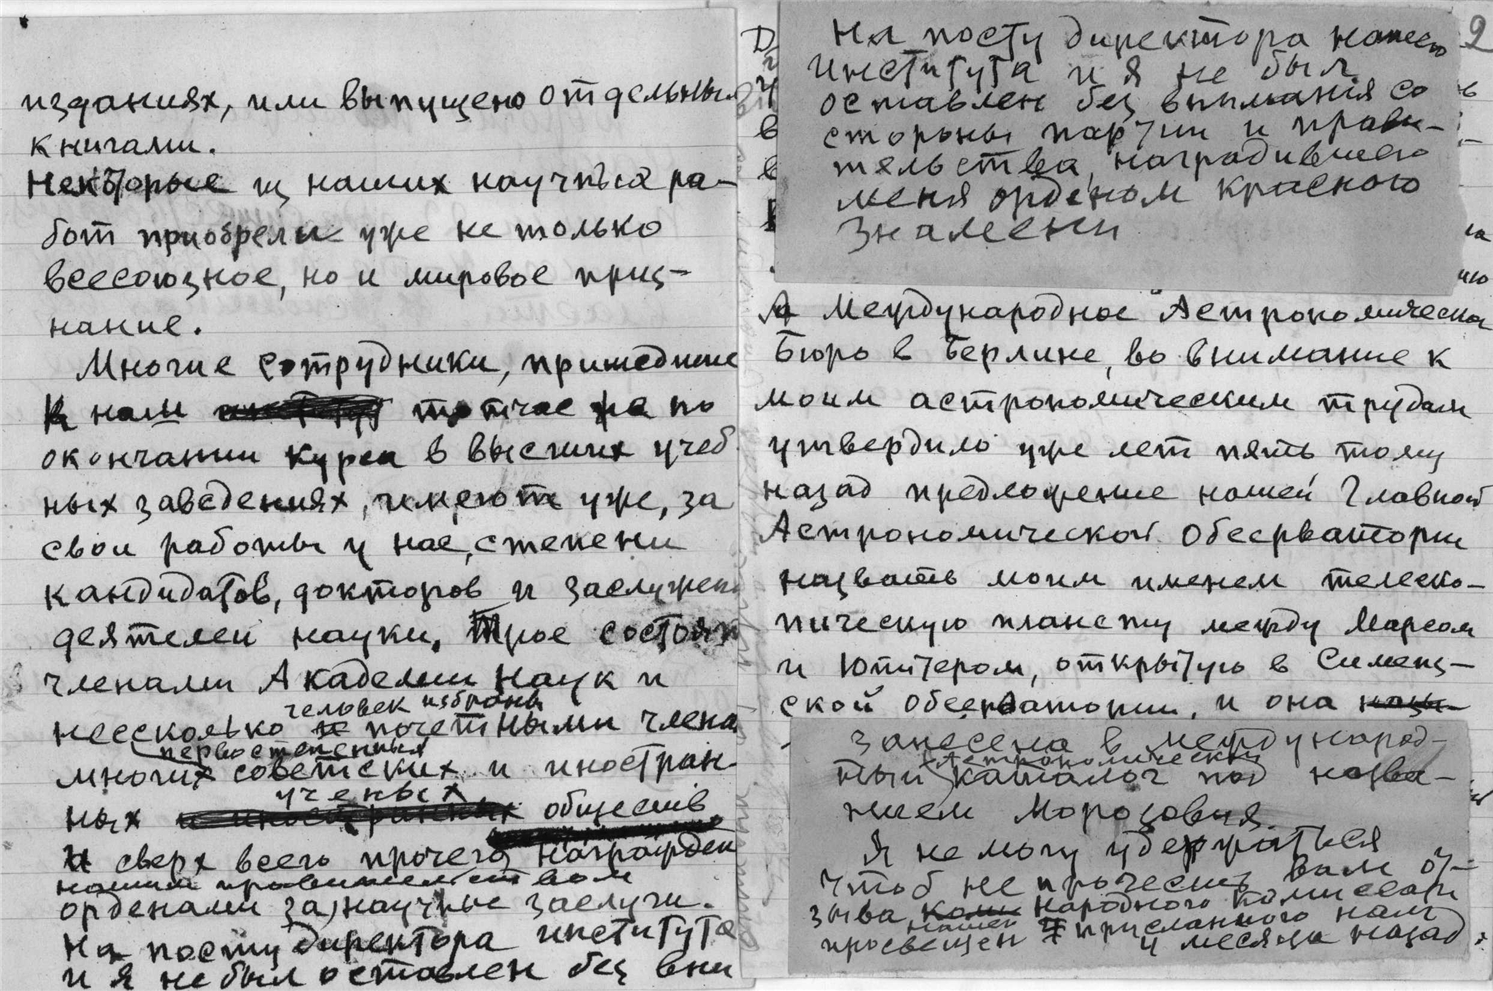 изданиях, или выпущено отдельны
книгами.
Некоторые из наших научных ра-
бот приобрели уже не только
всесоюзное, но и мировое приз-
нание.
Многие сотрудники, пришедшие
к нам тотчас же по
окончании курса в высших учеб
ных заведениях, имеют уже, за
свои работы у нас, степени
кандидатов, докторов и заслужен
деятелей науки. Трое состоят
членами Академии Наук и
человек избраны
несколько почетными члена
первостепенных
многих советских и иностран-
ученых
ных обществ
и сверх всего прочего награжден
нашим правительством
орденами за научные заслуги.
На посту директора института
и я не был оставлен без вни
2
На посту директора нашего
института и я не был
оставлен без внимания со
стороны партии и прави-
тельства, наградившего
меня орденом красного
Знамени
А Международное Астрономическое
Бюро в Берлине, во внимание к
моим астрономическим трудам
утвердило уже лет пять тому
назад предложение нашей Главной
Астрономической Обсерватории
назвать моим именем телеско-
пическую планету между Марсом
и Юпитером, открытую в Симеиз-
ской обсерватории, и она назы-
занесена в международ-
астрономический
ный каталог под назва-
нием Морозовия.
Я не могу удержаться
чтоб не прочесть вам от-
зыва народного комиссари
просвещен нашей присланного нам
4 месяца назад.